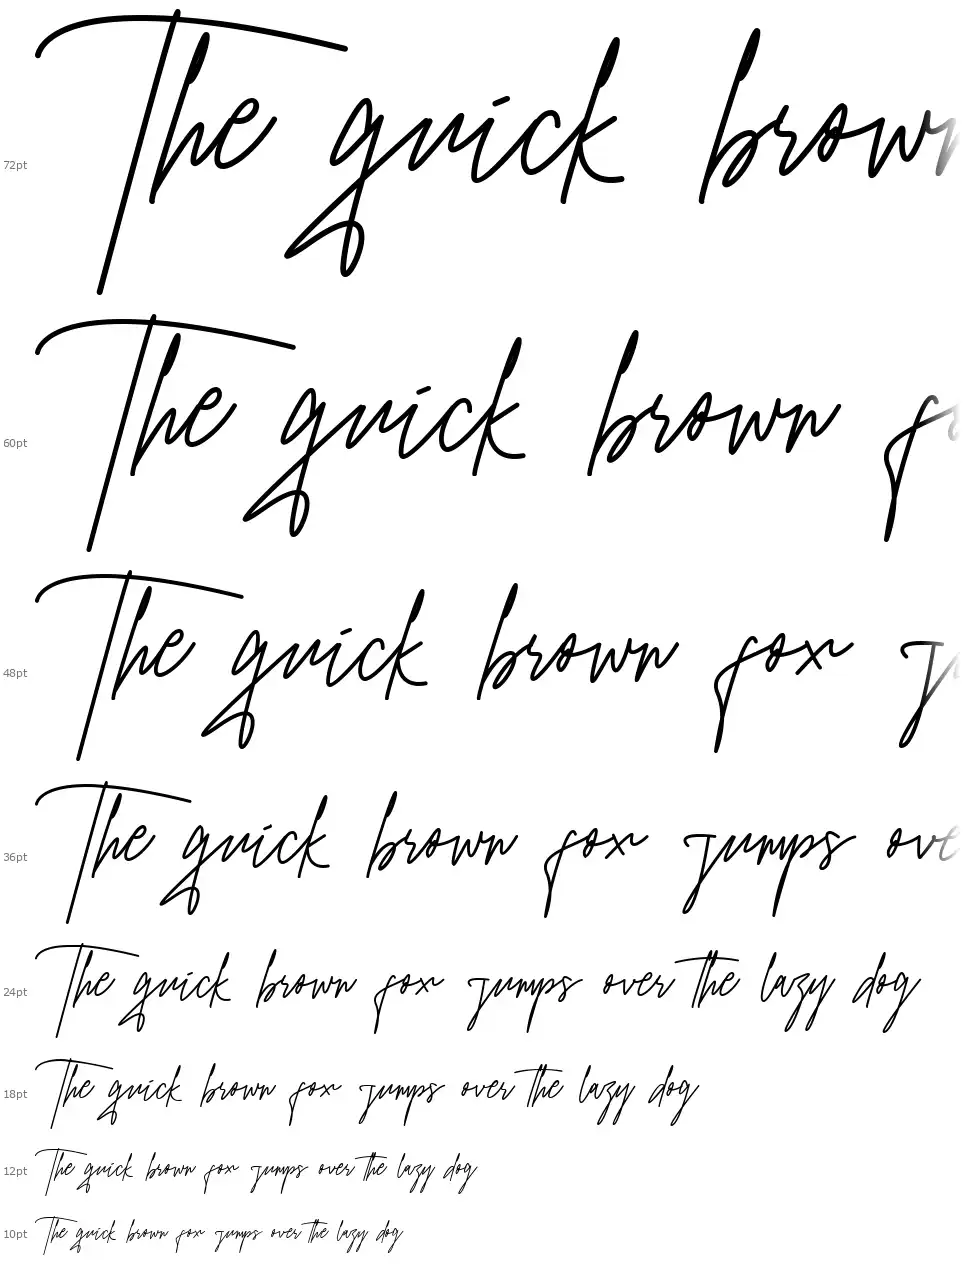 72pt The quick brown
60pt The quick brown fo
48pt The quick brown fox ju
36pt The quick brown fox jumps ove
24pt The quick brown fox jumps over the lazy dog
18pt The quick brown fox jumps over the lazy dog
12pt The quick brown fox jumps over the lazy dog
10pt The quick brown fox jumps over the lazy dog